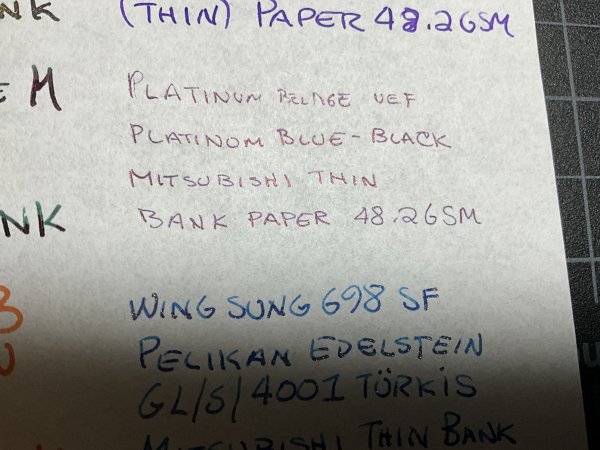 NK (THIN) PAPER 48.2GSM
M PLATINUM BELAGE UEF
PLATINOM BLUE-BLACK
MITSUBISHI THIN
NK BANK PAPER 48.2GSM
WING SUNG 698 SF
PELIKAN EDELSTEIN
GL/S/4001 TÜRKIS
MITSUBISHI THIN BANK